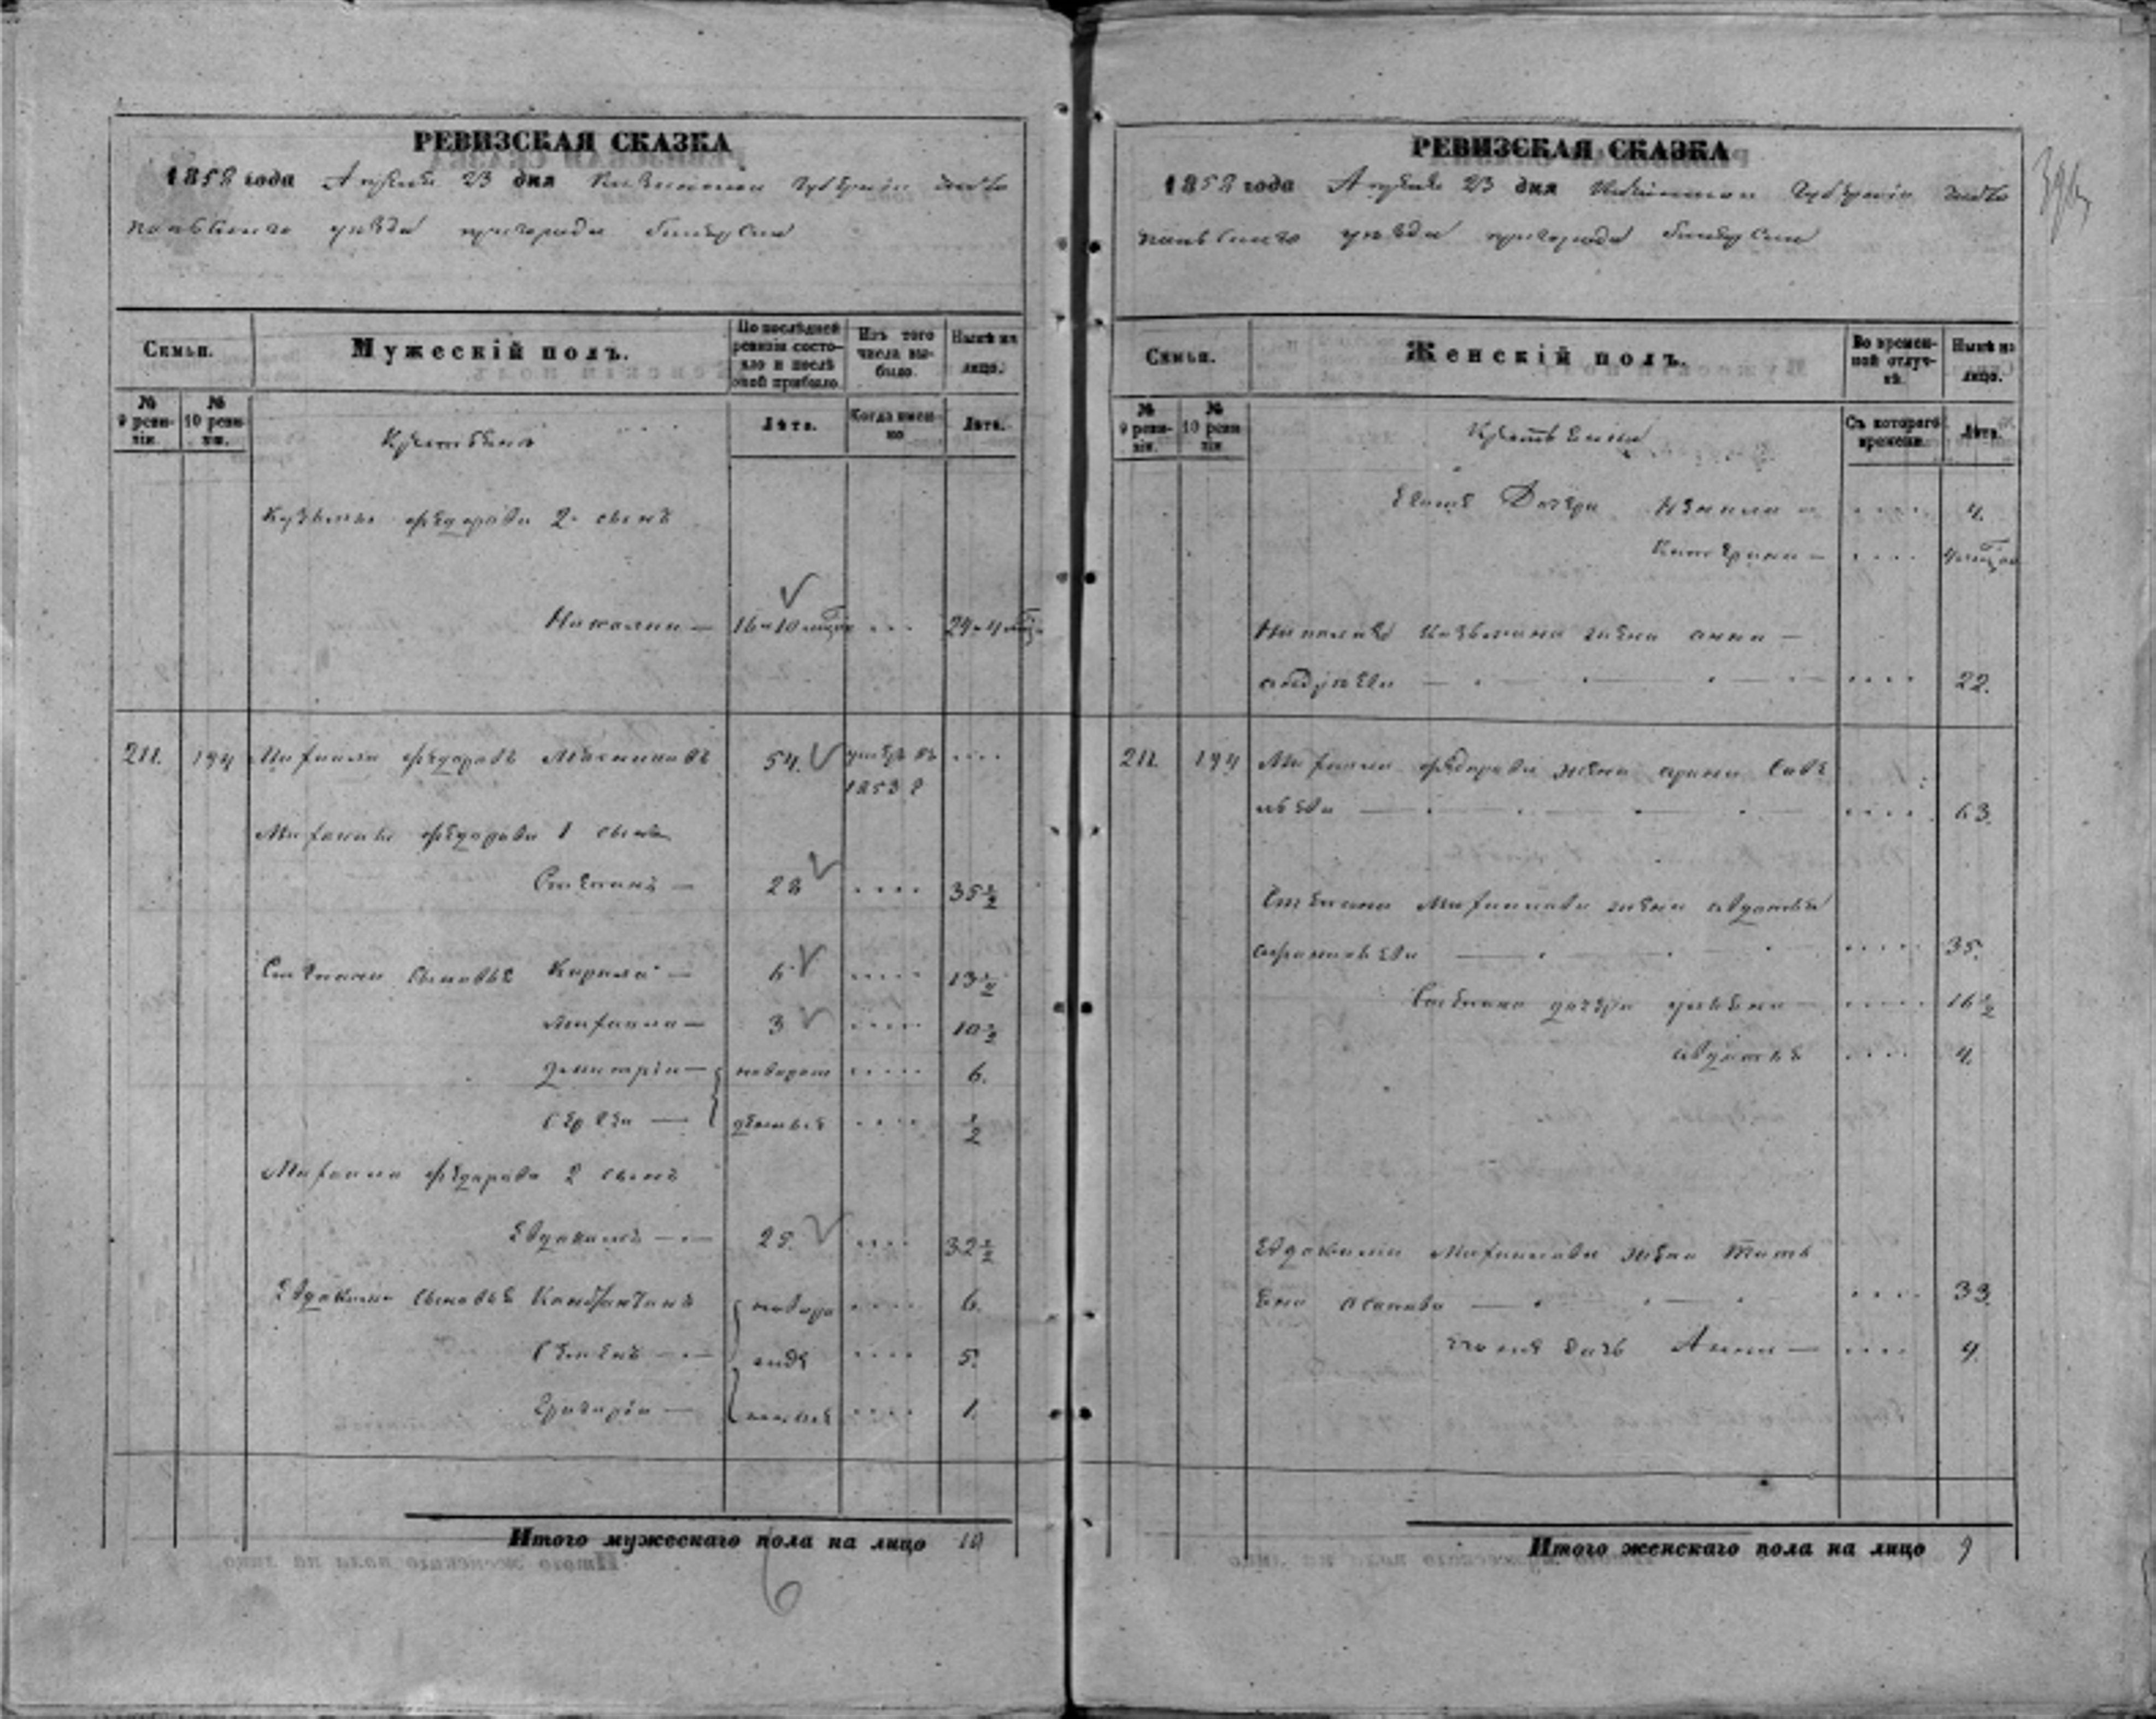 РЕВИЗСКАЯ СКАЗКА
1858 года Апреля 23 дня Казанской Губернiи чисто
польскаго уезда пригорода билярска
Семьи.
Мужескiй полъ.
По послѣдней ревизiи состояло и послѣ оной прибыло.
Изъ того числа выбыло.
Нынѣ на лицо.
№ 9 ревизiи.
№ 10 ревизiи.
Лѣта.
Когда именно
Лѣта.
Кузьмы федорова 2. сынъ
Николай — 16 и 10 .... 24 и 4
211. 194 Михайла федоровъ 54. умеръ въ ....
1853 г
Михайлы федорова 1 сынъ
Степанъ — 28 .... 35 ½
Степана сыновья Кирила — 6 .... 13 ½
Михайла — 3 .... 10 ½
Димитрiй — .... 6.
Сергей — .... ½
Михайла федорова 2 сынъ
Евдокимъ — 25. .... 32 ½
Евдокима сыновья Констянтинъ .... 6.
Семенъ — .... 5.
Григорiй — .... 1.
Итого мужескаго пола на лицо 10
6
РЕВИЗСКАЯ СКАЗКА
1858 года Апреля 23 дня Казанской Губернiи чисто
польскаго уезда пригорода билярска
Семьи.
Женскiй полъ.
Во временной отлучкѣ.
Нынѣ на лицо.
№ 9 ревизiи.
№ 10 ревизiи.
Съ котораго времени.
Лѣта.
дочери .... 4.
Катерина — ....
Николая Козьмина жена анна —
.... 22.
211. 194 Михайла федорова жена арина саве
льева — .... 63.
Степана Михайлова жена авдотья
.... 35.
Степана дочери .... 16 ½
авдотья .... 4.
Евдокима Михайлова жена Тать
яна осипова — .... 33.
дочь Анна — .... 4.
Итого женскаго пола на лицо 9